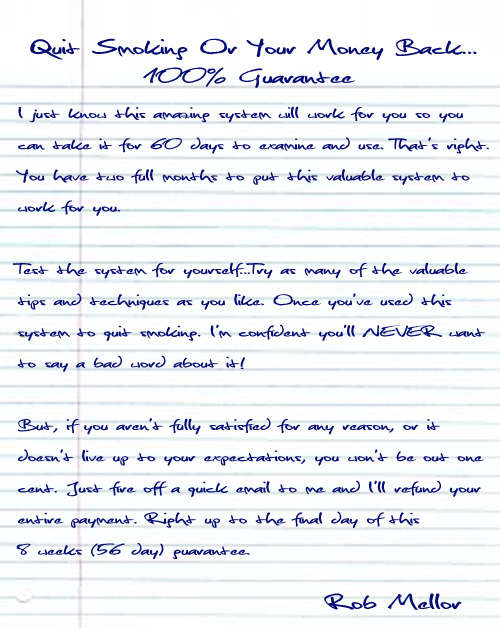 Quit Smoking Or Your Money Back...
100% Guarantee
I just know this amazing system will work for you so you
can take it for 60 days to examine and use. That's right.
You have two full months to put this valuable system to
work for you.
Test the system for yourself...Try as many of the valuable
tips and techniques as you like. Once you've used this
system to quit smoking. I'm confident you'll NEVER want
to say a bad word about it!
But, if you aren't fully satisfied for any reason, or it
doesn't live up to your expectations, you won't be out one
cent. Just fire off a quick email to me and I'll refund your
entire payment. Right up to the final day of this
8 weeks (56 day) guarantee.
Rob Mellor